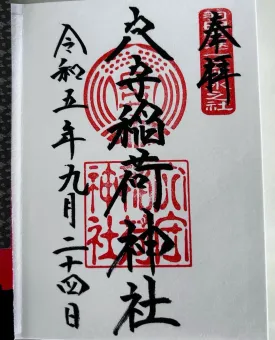 奉拝
穴守稲荷神社
令和五年九月二十四日
神社